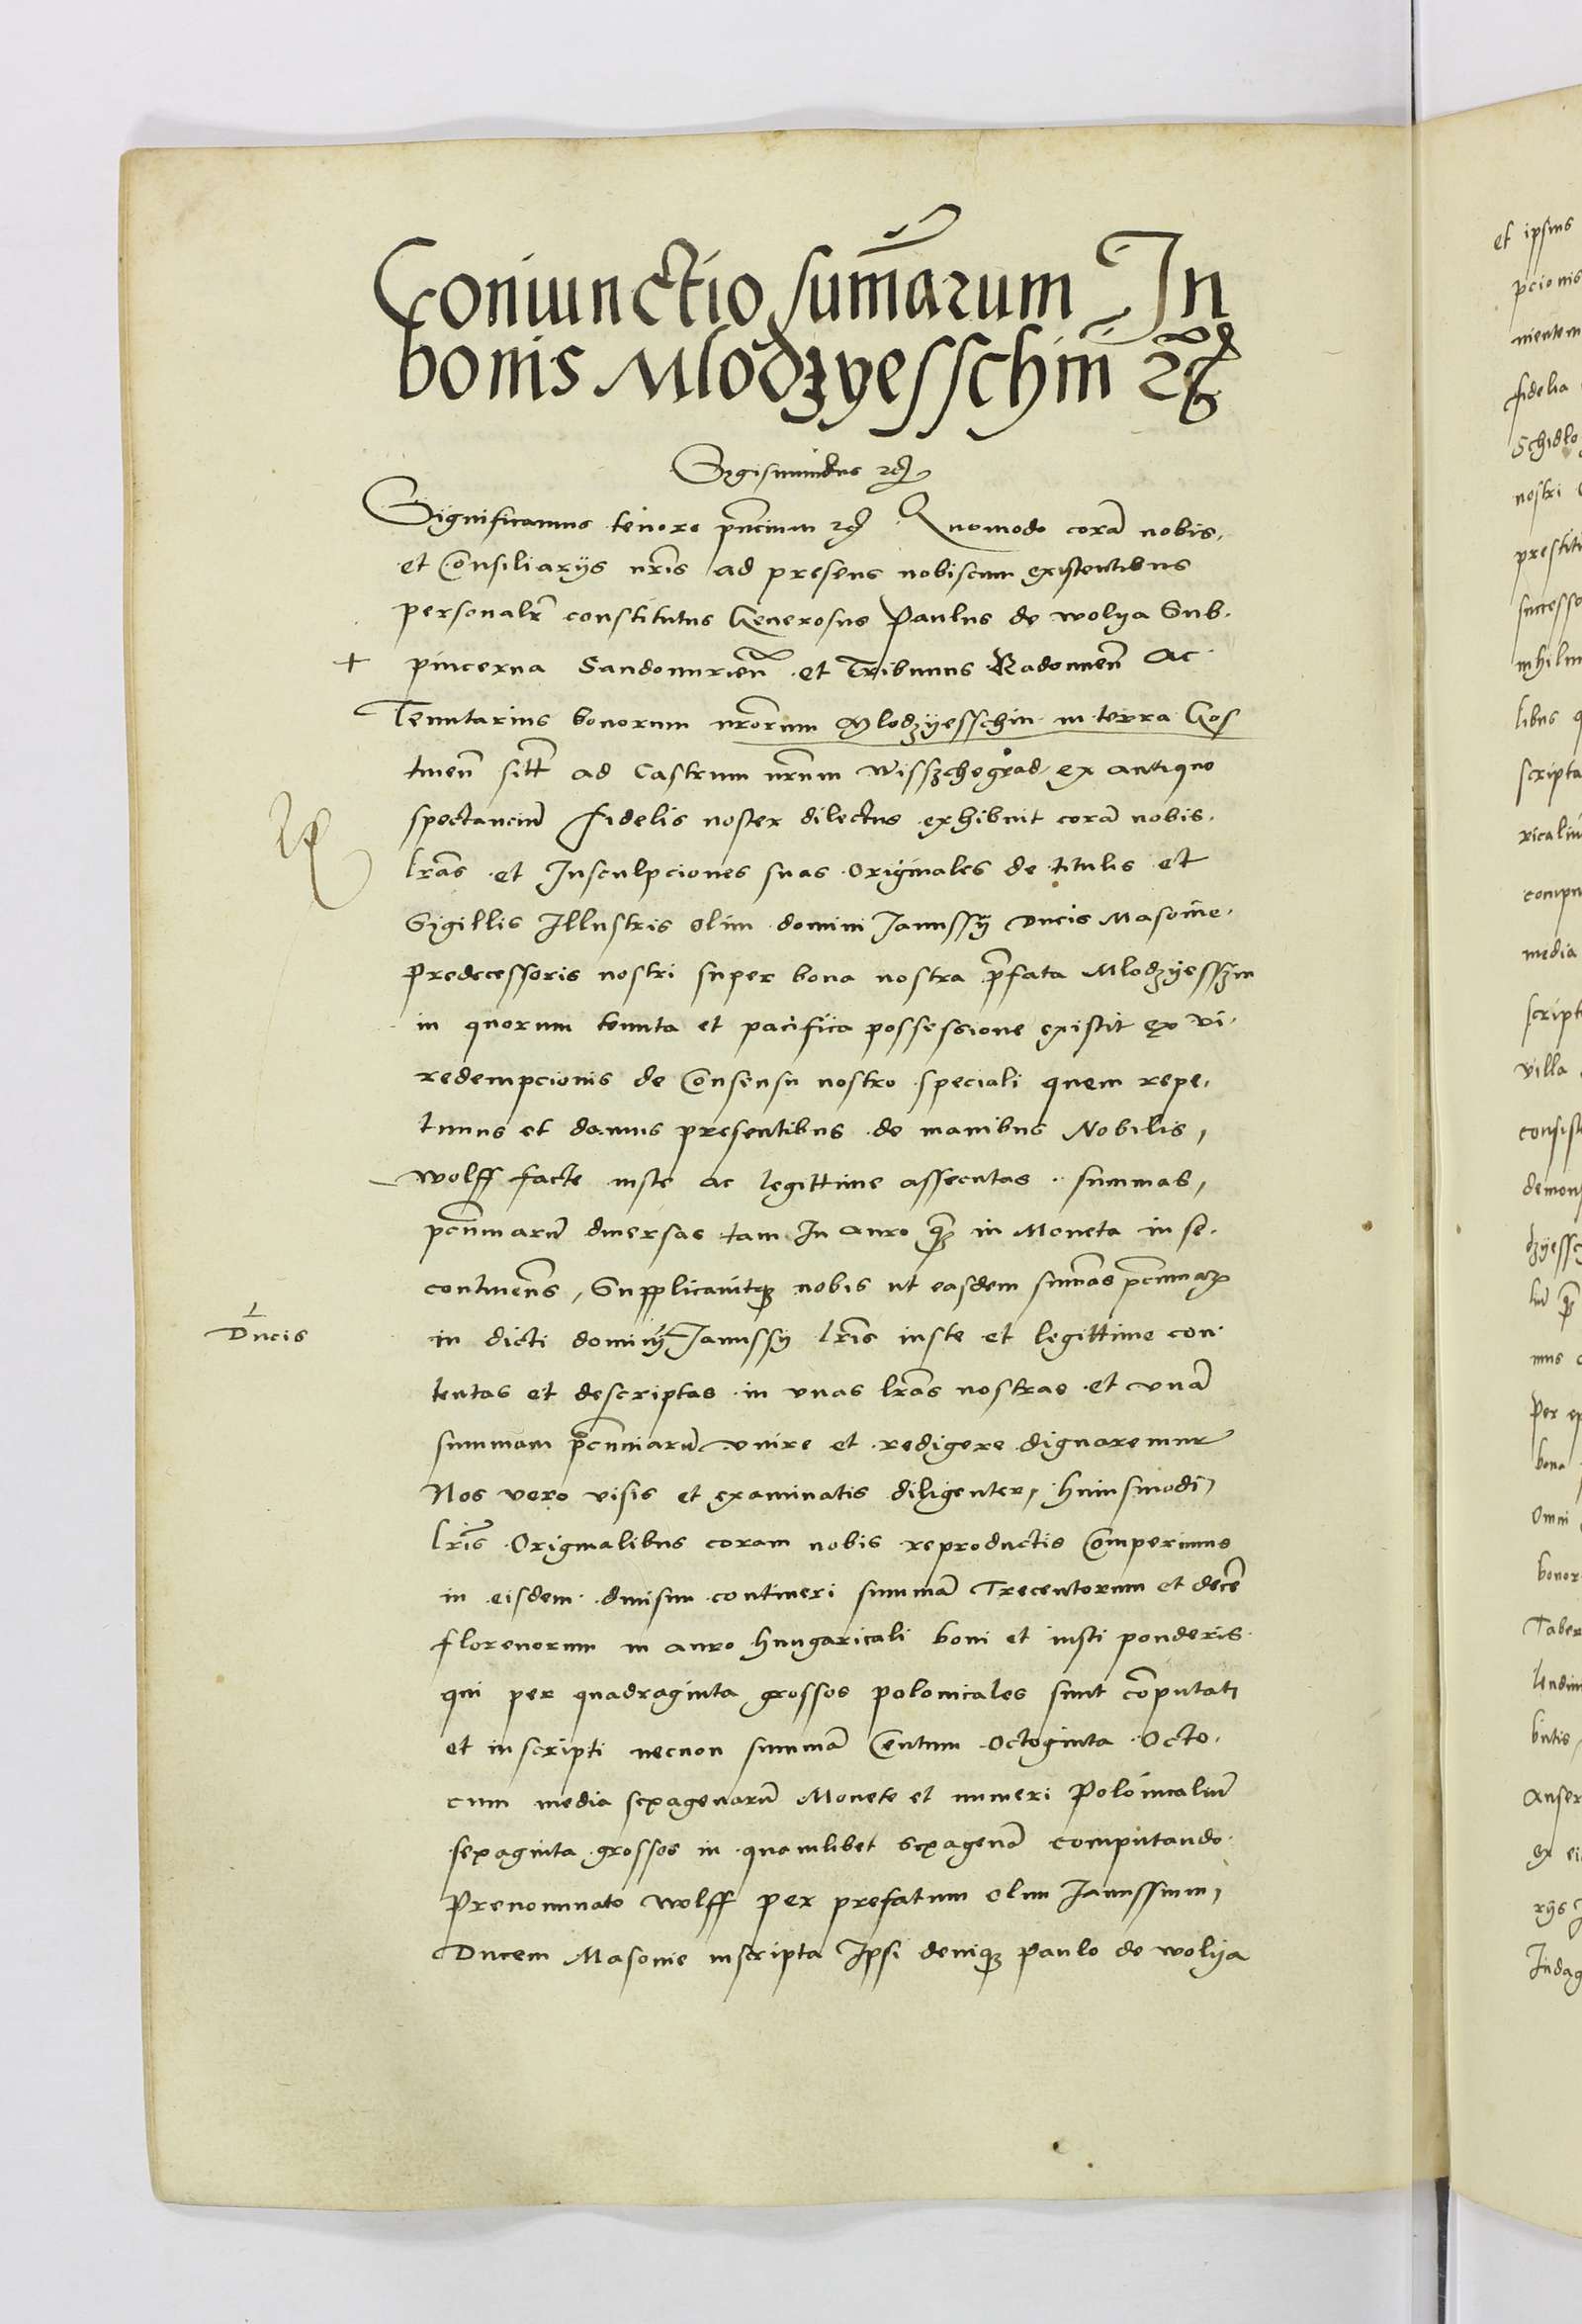 Coniunctio sum̄arum In
bonis Mlodzyesschin ꝛc̃
Sigismundus ꝛc̃
Significamus tenore pn̄cium ꝛc̃ Quomodo corā nobis.
et Consiliariis nr̄is ad presens nobiscum existentibus
personalr̄ constitutus Generosus Paulus de wolya Sub.
+ pincerna Sandomirien̄ et Tribunus Radomien̄ Ac
Tenutarius bonorum nr̄orum Mlodzyesschin in terra Gos
tinen̄ sitt̄ ad Castrum nr̄um Wisszchegrad ex antiquo
spectanciū fidelis noster dilectus exhibuit corā nobis.
lr̄as et Insculpciones suas Originales de titulis et
Sigillis Illustris olim domini Janussij Ducis Masouie.
Predecessoris nostri super bona nostra p̄fata Mlodzyesszin
in quorum tenuta et pacifica possessione existit ex vi.
redempcionis de Consensu nostro speciali quem repe.
timus et damus presentibus de manibus Nobilis,
wolff facte iuste ac legittime assecutas summas,
pecūniarū diuersas tam In auro q̄ȝ in Moneta in se.
continen̄s, Supplicauitqȝ nobis ut easdem sum̄as pecuniaꝝ
in dicti dominij Janussij lr̄is iuste et legittime con
Ducis
tentas et descriptas in vnas lr̄as nostras et vnā
summam pecuniarū vnire et redigere dignaremur
Nos vero visis et examinatis diligenter, huiusmodi,
lr̄is Originalibus coram nobis reproductis Comperimus
in eisdem diuisim contineri summā Trecentorum et decē
florenorum in auro hungaricali boni et iusti ponderis
qui per quadraginta grossos polonicales sunt cōputati
et inscripti necnon summā Centum Octoginta Octo.
cum media sexagenarū Monete et numeri Polonicaliū
sexaginta grossos in quamlibet sexagenā computando
Prenominato wolff per prefatum olim Janussium,
Ducem Masouie inscripta Ipsi deniqȝ Paulo de wolya
et ipsius
pcionis
nientem
fidelia
Schidlo
nostri
prestiti
successo
nihilm
libus q
scripta
ricaliū
compu
media
script
villa
consist
demons
dzyessc
mus c
Per
bona
Omni
bonor
Taber
lendin
butis,
Anser
ex ei
Indag